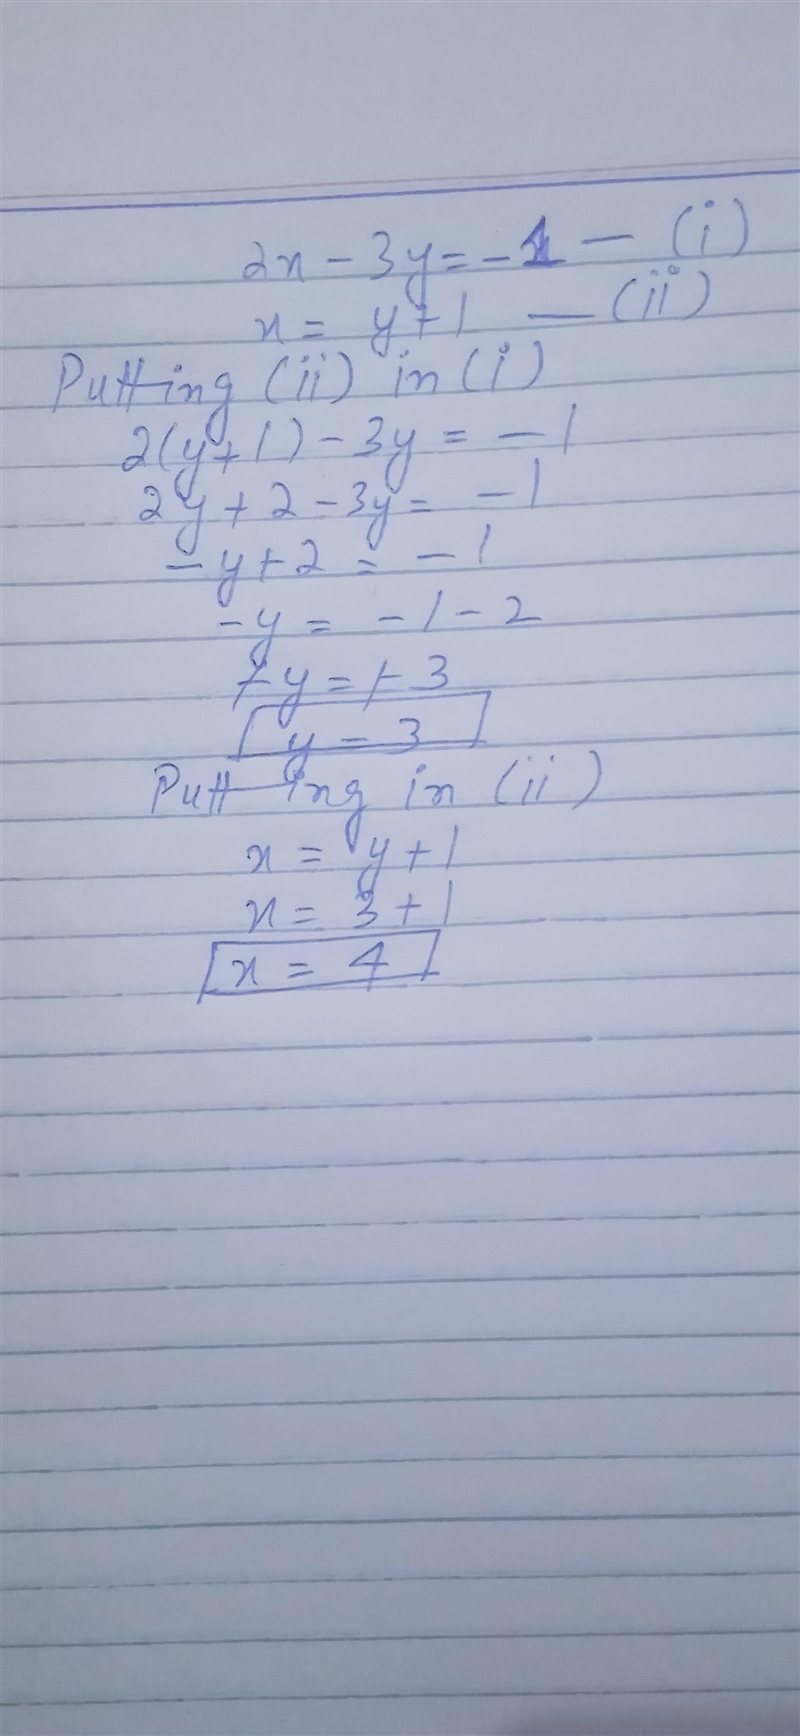 2x - 3y = -1 — (i)
x = y+1 — (ii)
Putting (ii) in (i)
2(y+1) - 3y = -1
2y + 2 - 3y = -1
-y + 2 = -1
-y = -1 - 2
-y = -3
y = 3
Putting in (ii)
x = y+1
x = 3+1
x = 4